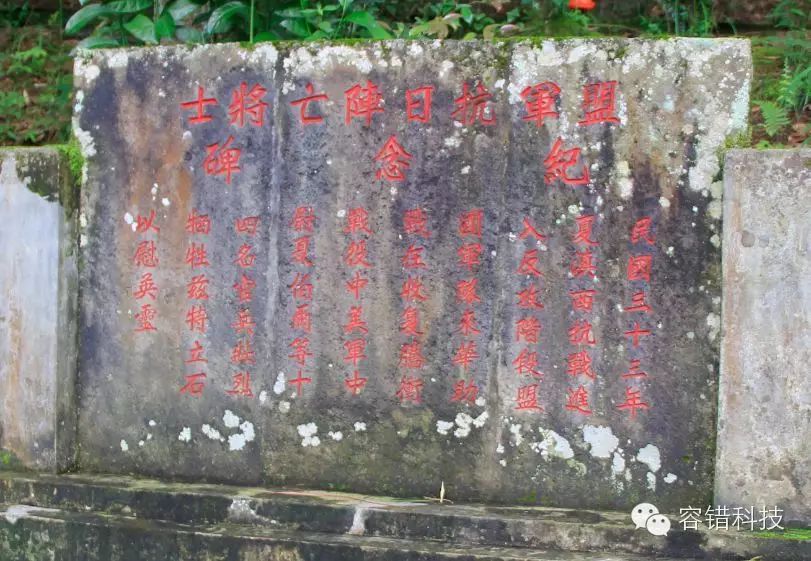 盟軍抗日陣亡將士
紀念碑
民國三十三年
夏滇西抗戰進
入反攻階段盟
國軍隊來華助
戰在收复騰衝
戰役中美軍中
尉夏伯爾等十
四名官兵壯烈
牺牲兹特立石
以慰英靈
容错科技